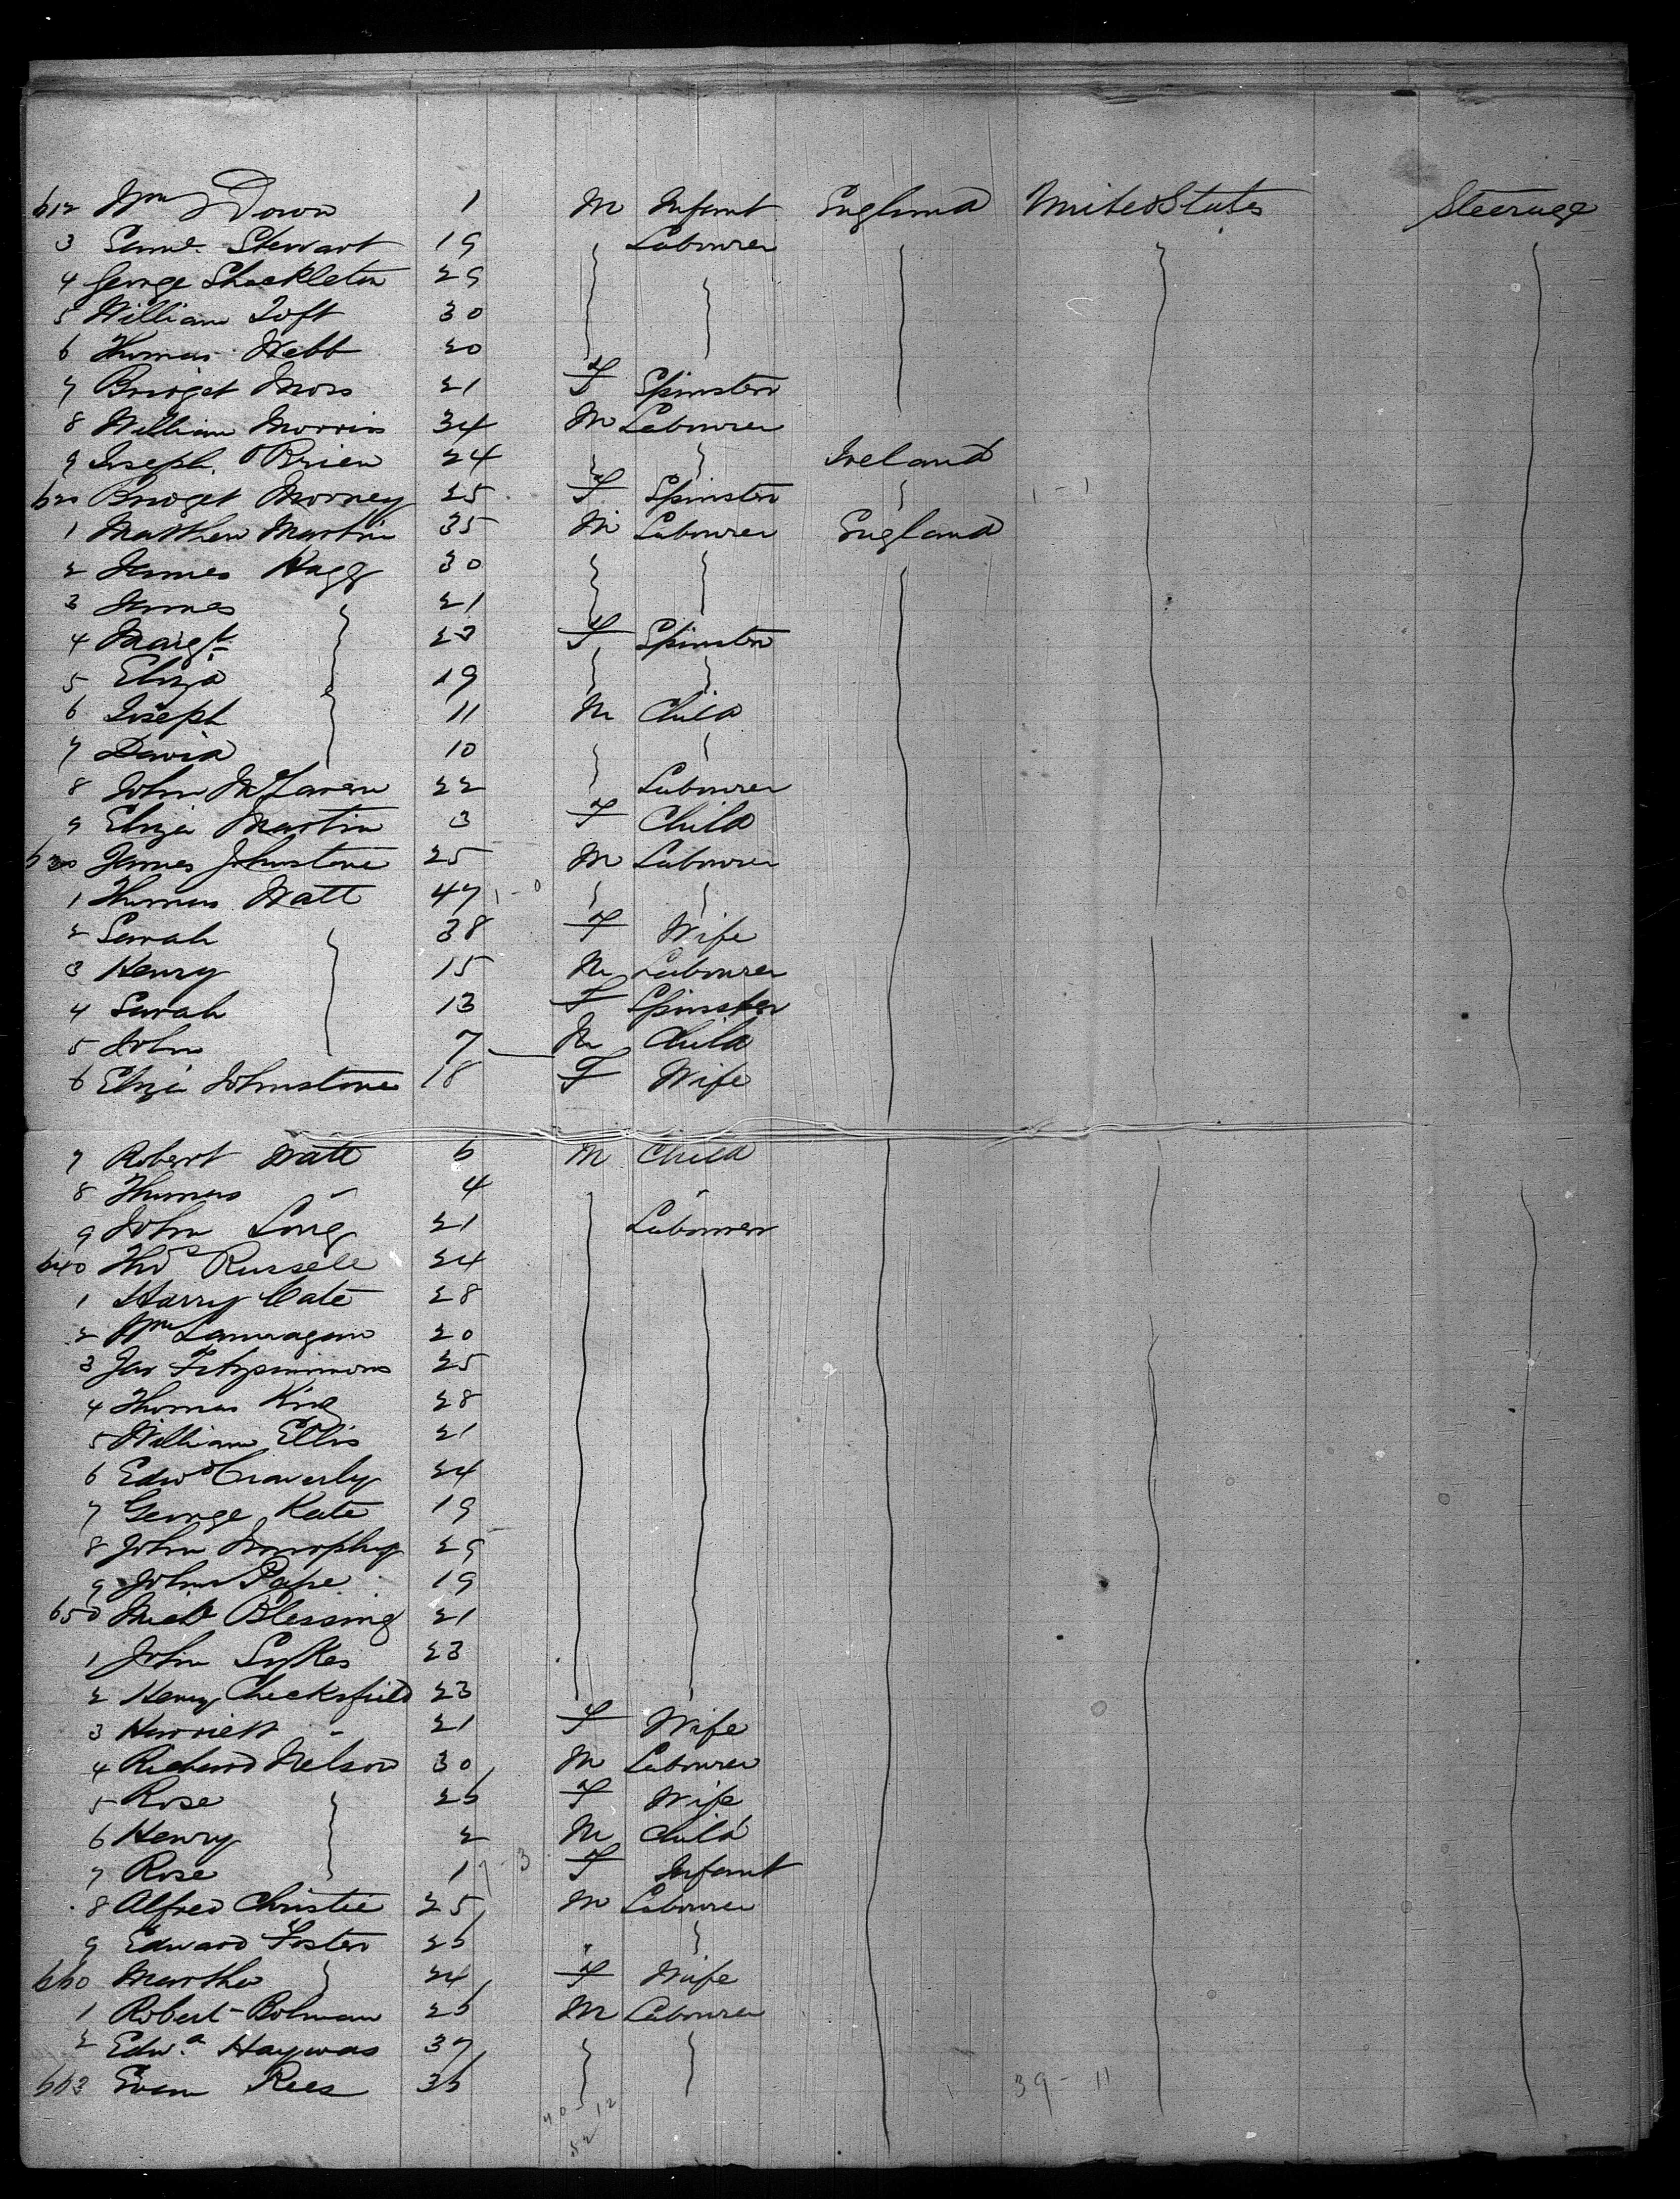 612 Wm Down 1 M Infant England United States Steerage
3 Saml. Stewart 19 Labourer
4 George Shackleton 29
5 William Toft 30
6 Thomas Webb 20
7 Bridget Moss 21 F Spinster
8 William Morris 34 M Labourer
9 Joseph O'Brien 24 Ireland
620 Bridget Morney 25 F Spinster
1 Matthew Martin 35 M Labourer England
2 James Hagg 30
3 James 21
4 Margt. F Spinster
5 Eliza 19
6 Joseph 11 M Child
7 David 10
8 John McLaren 22 Labourer
9 Eliza Martin 3 F Child
630 James Johnstone 25 M Labourer
1 Thomas Watt 47
2 Sarah 38 F Wife
3 Henry 15 M Labourer
4 Sarah 13 F Spinster
5 John 7 M Child
6 Eliza Johnstone 18 F Wife
7 Robert Watt 6 M Child
8 Thomas " 4 "
9 John Long 21 Labourer
640 Thos Russell 24
1 Harry Cate 28
2 Wm 20
3 Jas Fitzsimmons 25
4 Thomas King 28
5 William Ellis 21
6 Edwd 24
7 George Kate 19
8 John 29
9 John Pape 19
650 Michl Blessing 21
1 John Sykes 23
2 Henry Checksfield 23
3 Harriett " 21 F Wife
4 Richard Nelson 30 M Labourer
5 Rose 26 F Wife
6 Henry 2 M Child
7 Rose 1 F Infant
8 Alfred Christie 25 M Labourer
9 Edward Foster 26 "
660 Martha 24 F Wife
1 Robert Bolman 26 M Labourer
2 Edwd. Haywood 37
663 Evan Rees 36 39 - 11
40 - 12
52